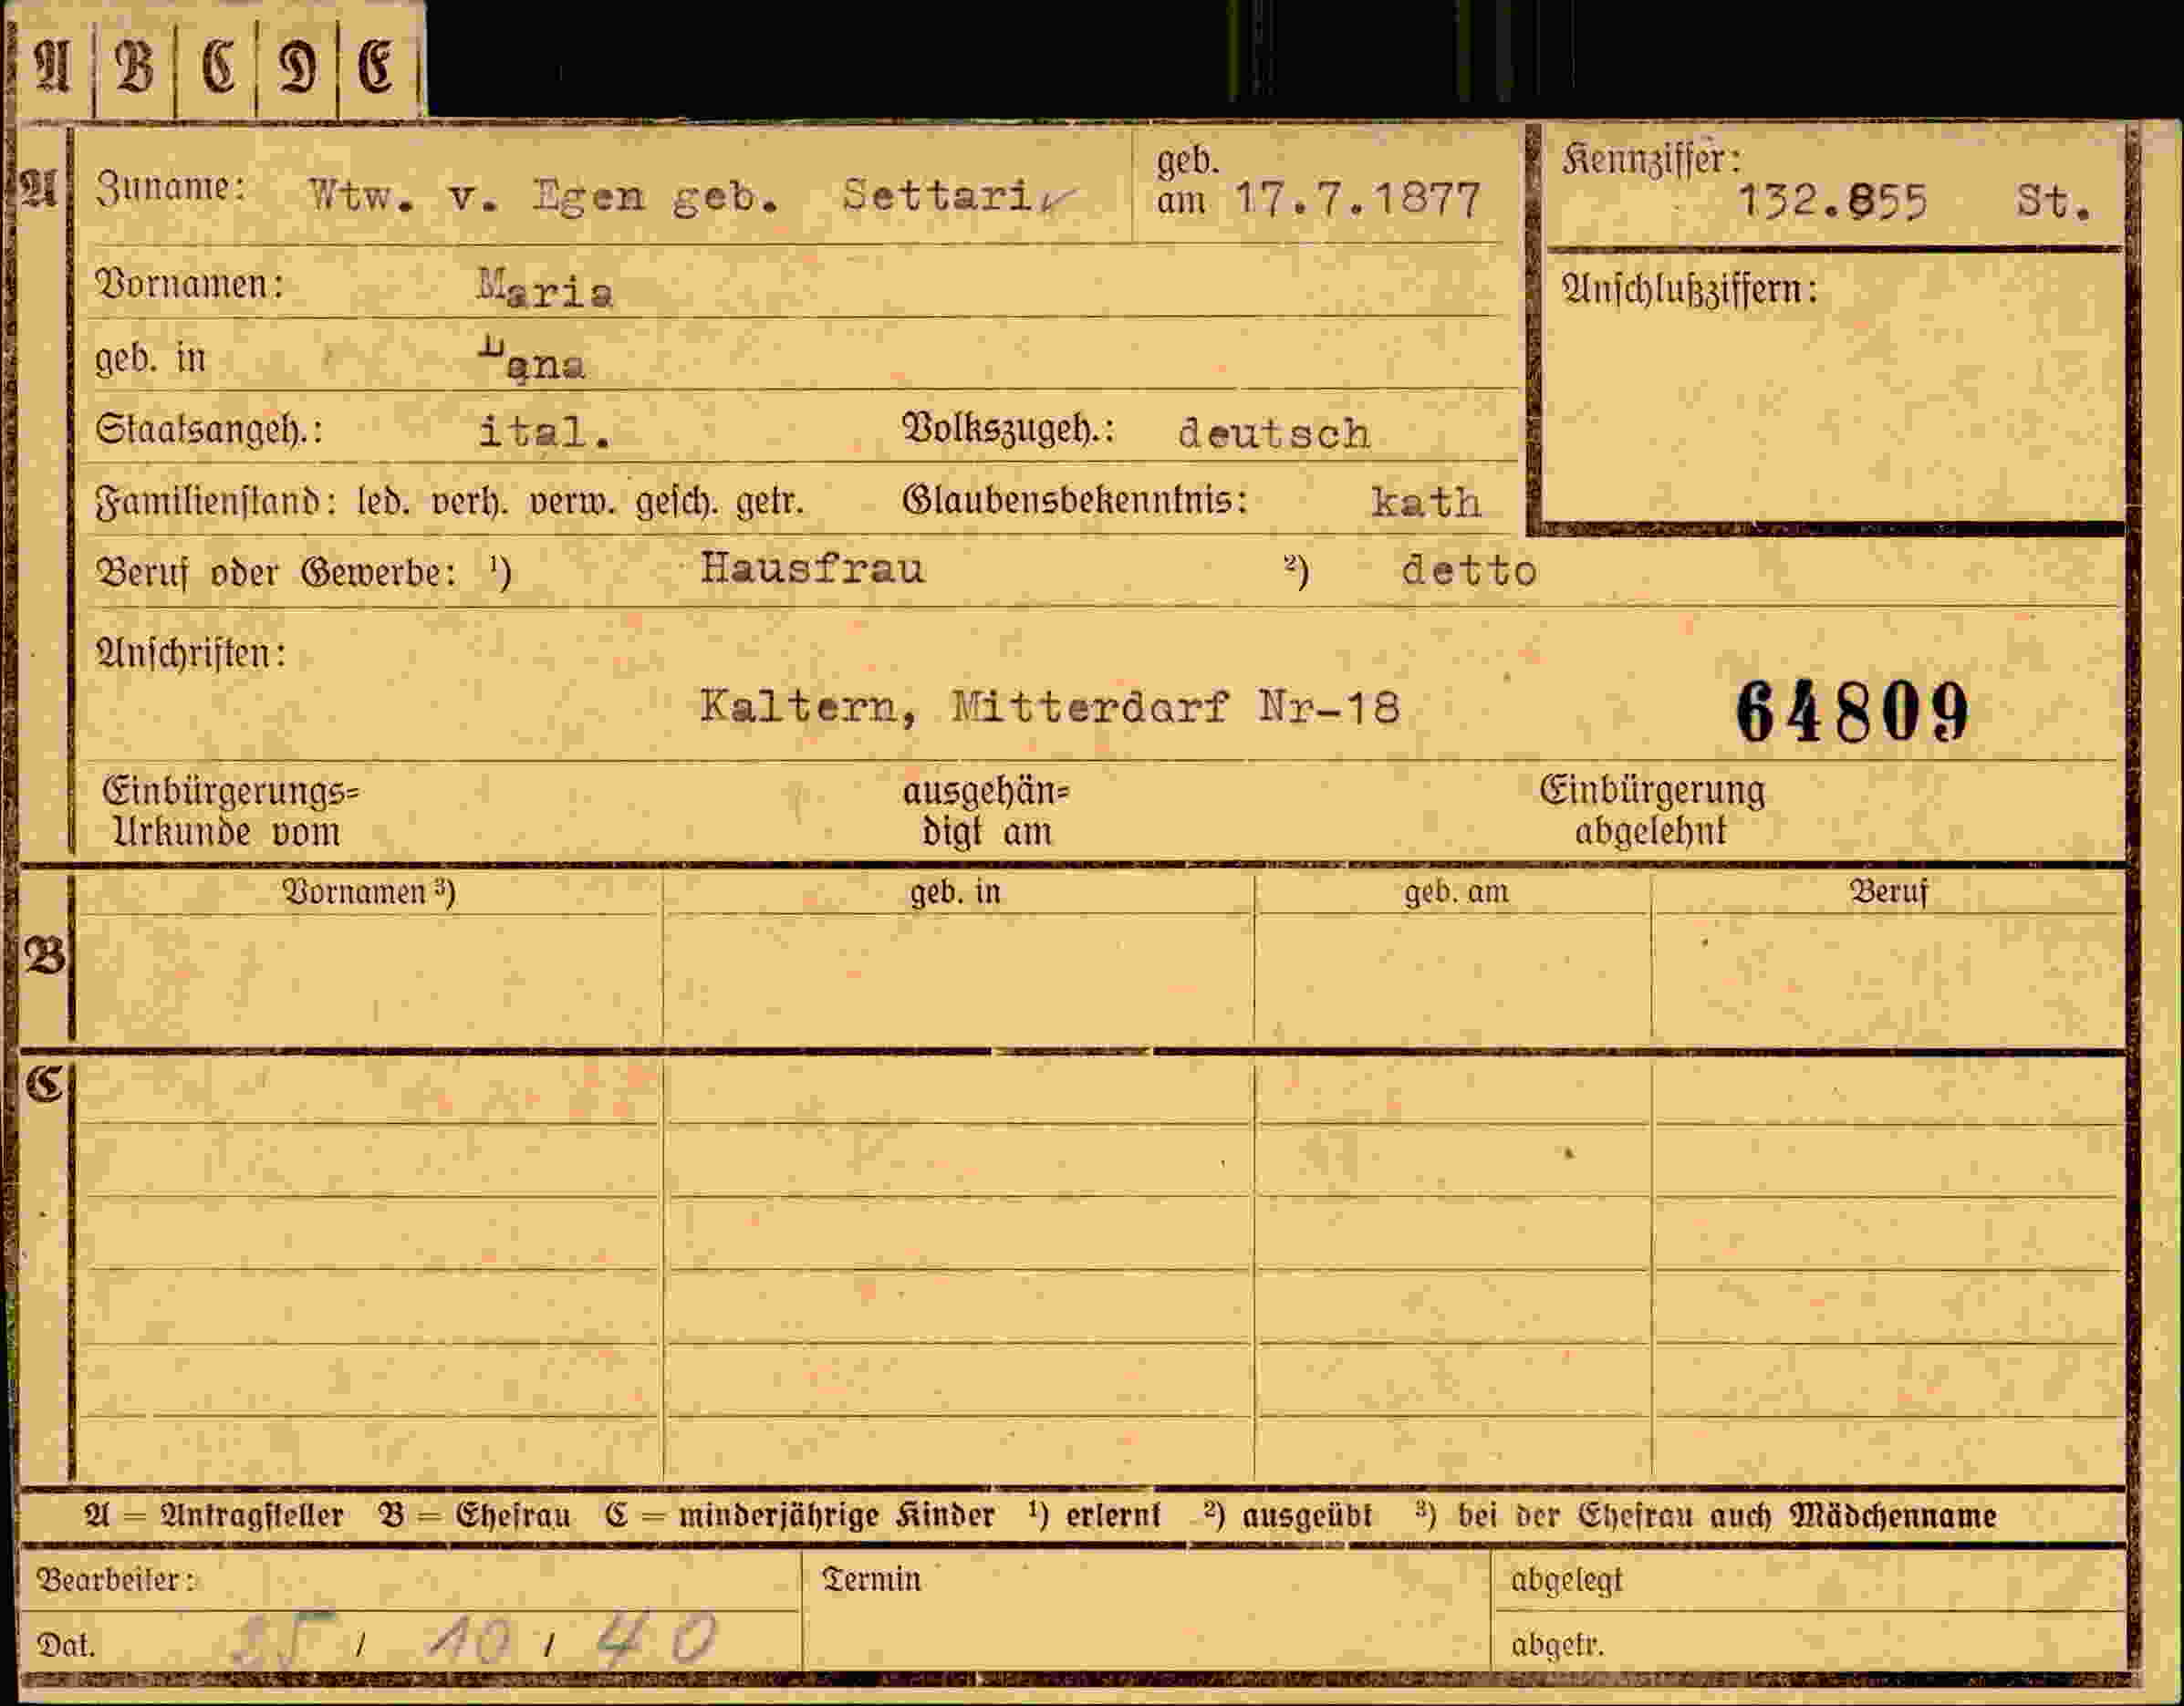 A B C D E
A Zuname: Wtw. v. Egen geb. Settari geb. am 17.7.1877 Kennziffer: 132.855 St.
Vornamen: Maria Anschlußziffern:
geb. in Lana
Staatsangeh.: ital. Volkszugeh.: deutsch
Familienstand: led. verh. verw. gesch. getr. Glaubensbekenntnis: kath
Beruf oder Gewerbe: ¹) Hausfrau ²) detto
Anschriften:
Kaltern, Mitterdarf Nr-18 64809
Einbürgerungs= ausgehän= Einbürgerung
Urkunde vom digt am abgelehnt
Vornamen ³) geb. in geb. am Beruf
B
C
A = Antragsteller B = Ehefrau C = minderjährige Kinder ¹) erlernt ²) ausgeübt ³) bei der Ehefrau auch Mädchenname
Bearbeiter: Termin abgelegt
Dat. 25 / 10 / 40 abgetr.